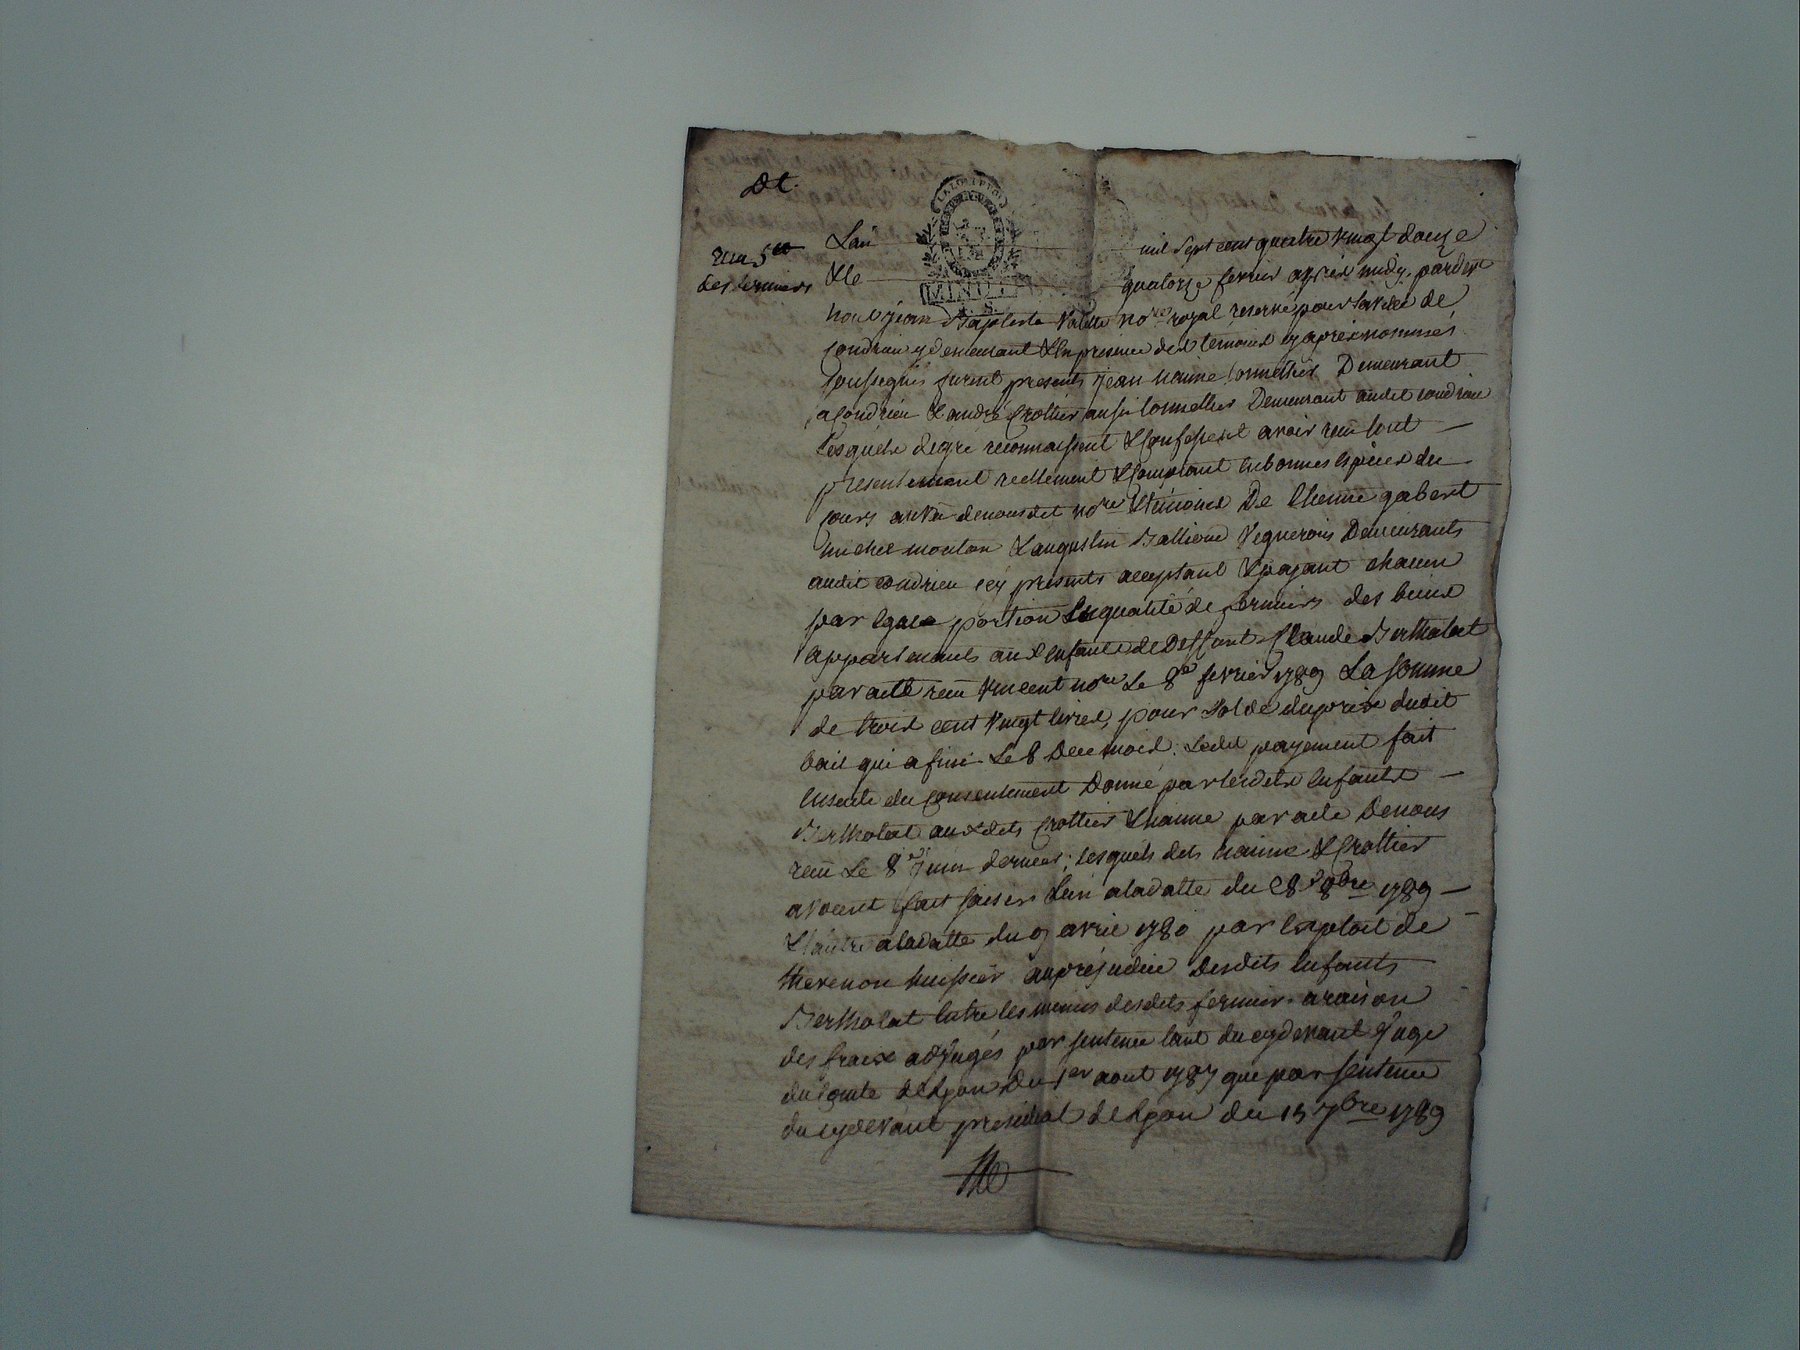 Dt.
LA LOI ET LE ROI
MINUTE
5 S.
Reçu 5
des fermiers
Lan mil sept cent quatre vingt douze
& le quatorze fevrier après midy, pardevt
nous jean Baptiste Valette nore royal reservé pour la ville de
condrieu y demeurant & en presence des temoins cy après nommés
soussignés furent presents jean nanne tonnellier Demeurant
a condrieu & andré Crottier aussi tonnellier Demeurant audit condrieu
Lesquels de gré reconnaissent & confessent avoir reçu tout
presentement reellement & comptant en bonnes espèces du
cours au vû de nous dit nore & temoins De Etienne gabert
michel mouton & augustin Vignerons Demeurants
audit condrieu icy presents acceptant & payant chacun
par egale portion En qualité de fermiers des biens
appartenants aux enfants de Deffunt Claude Bertholat
par acte reçu Vincent nore Le 8e fevrier 1789 La somme
de trois cent vingt livres, pour solde du prix dudit
bail qui a fini Le 8 De ce mois. Ledit payement fait
Ensuite du consentement Donné par lesdits Enfants
Bertholat auxdits Crottier & nanne par acte De nous
reçu Le 8e juin dernier; Lesquels dits nanne & Crottier
avoient fait saisir L'un a la datte du 28 8bre 1789
& lautre a la datte du 9 avril 1780 par Exploit de
thevenon huissier au préjudice Desdits Enfants
Bertholat Entre les mains desdits fermiers a raison
des fraix adjugés par sentence tant du cydevant juge
du comte de Lyon Du 1er aout 1787 que par sentence
du cydevant presidial de Lyon du 15 7bre 1789